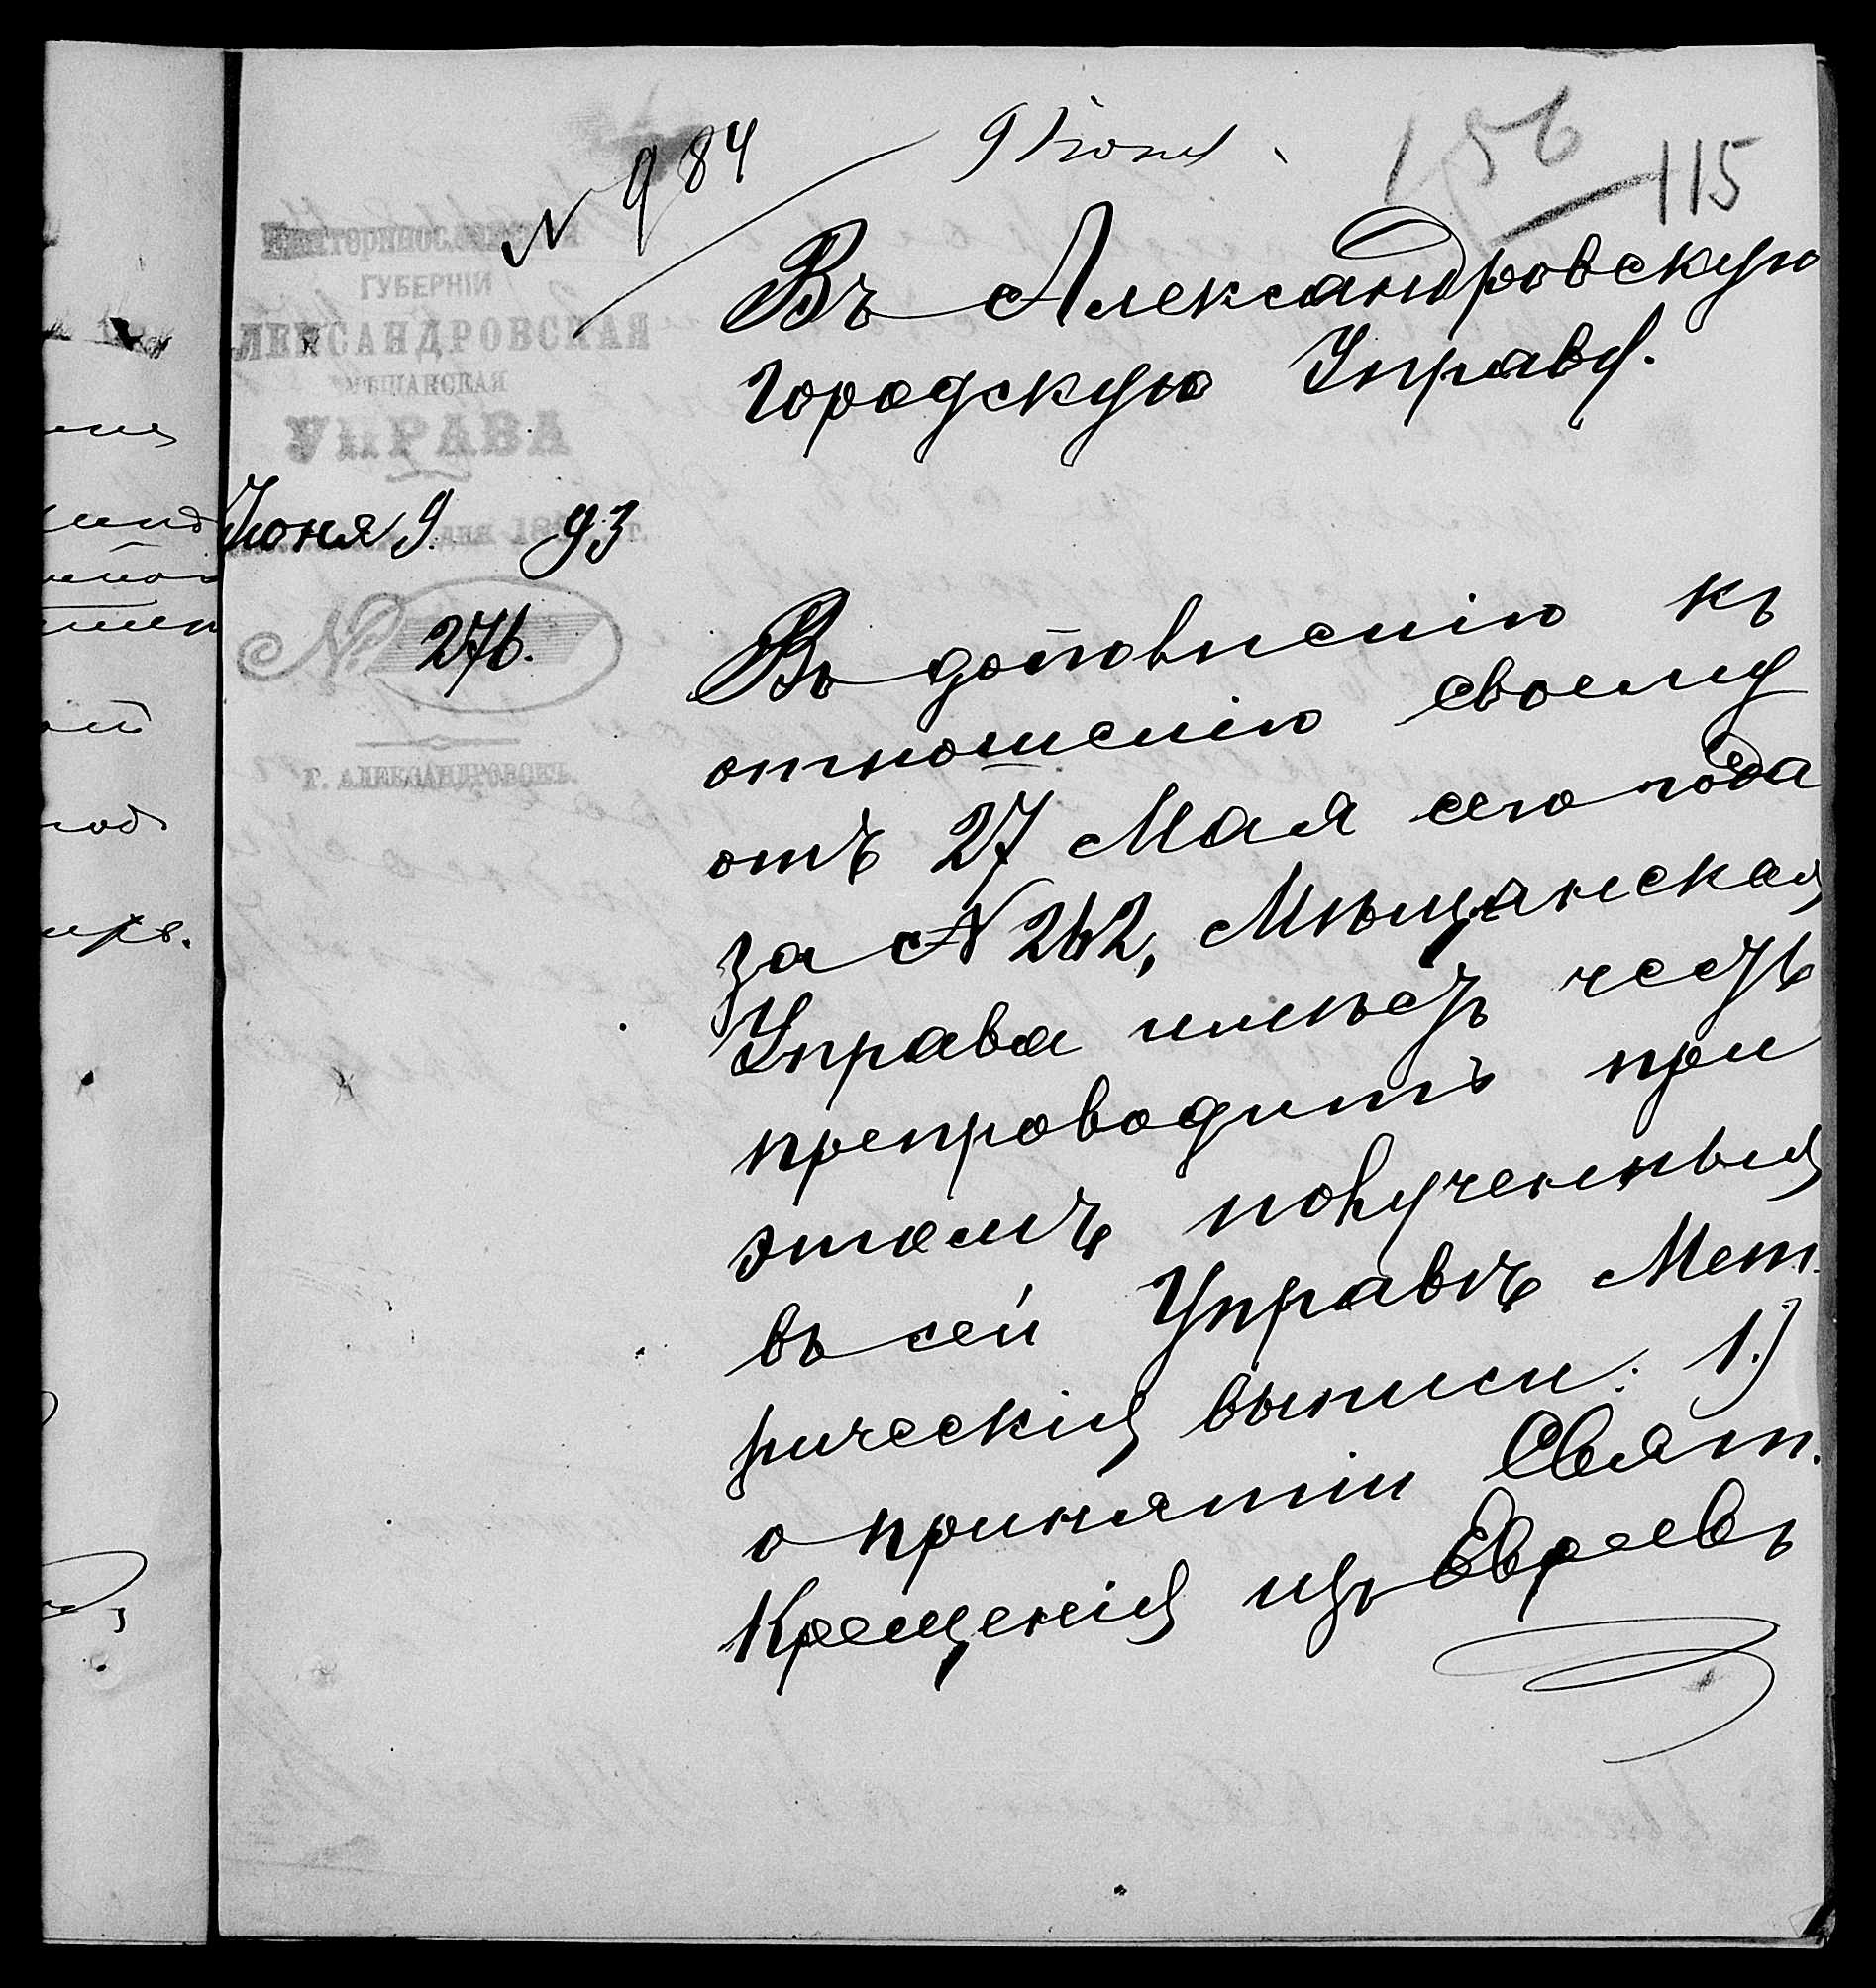 № 984
9 Іюня
156
115
Екатеринославской
ГУБЕРНІИ
АЛЕКСАНДРОВСКАЯ
МѢЩАНСКАЯ
УПРАВА
Іюня 9 дня 1893 г.
№ 276.
Г. АЛЕКСАНДРОВСКЪ.
Въ Александровскую
Городскую Управу.
Въ дополненію къ
отношенію своему
отъ 27 Мая сего года
за № 262, Мѣщанская
Управа имѣетъ честь
препроводить при
этомъ полученныя
въ сей Управѣ Мет
рическія выписи: 1)
о принятіи Свят.
Крещенія изъ Евреевъ